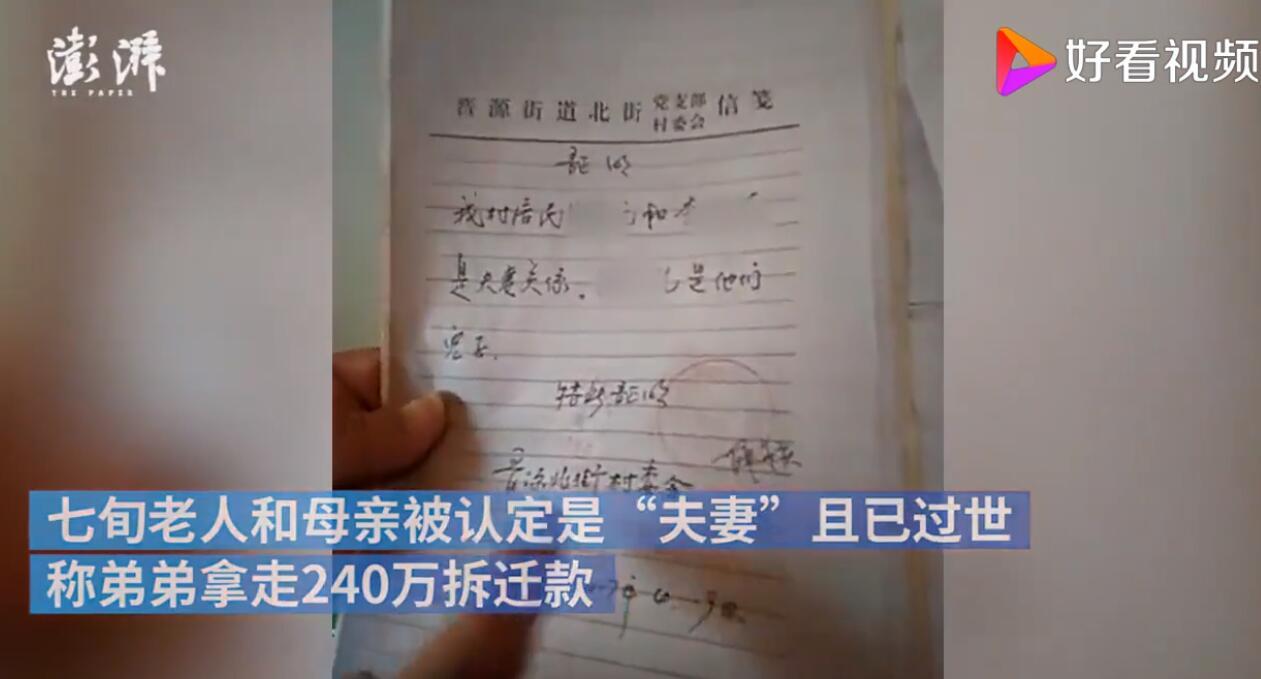 澎湃
THE PAPER
好看视频
晋源街道北街党支部村委会信笺
证明
我村居民 和李
是夫妻关系。 是他们
儿子.
特此证明
晋源北街村委会
七旬老人和母亲被认定是“夫妻”且已过世
称弟弟拿走240万拆迁款